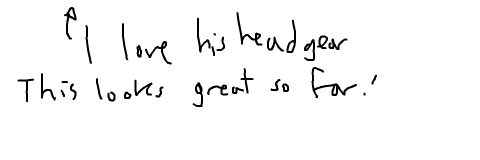 ↑ I love his headgear
This looks great so far!